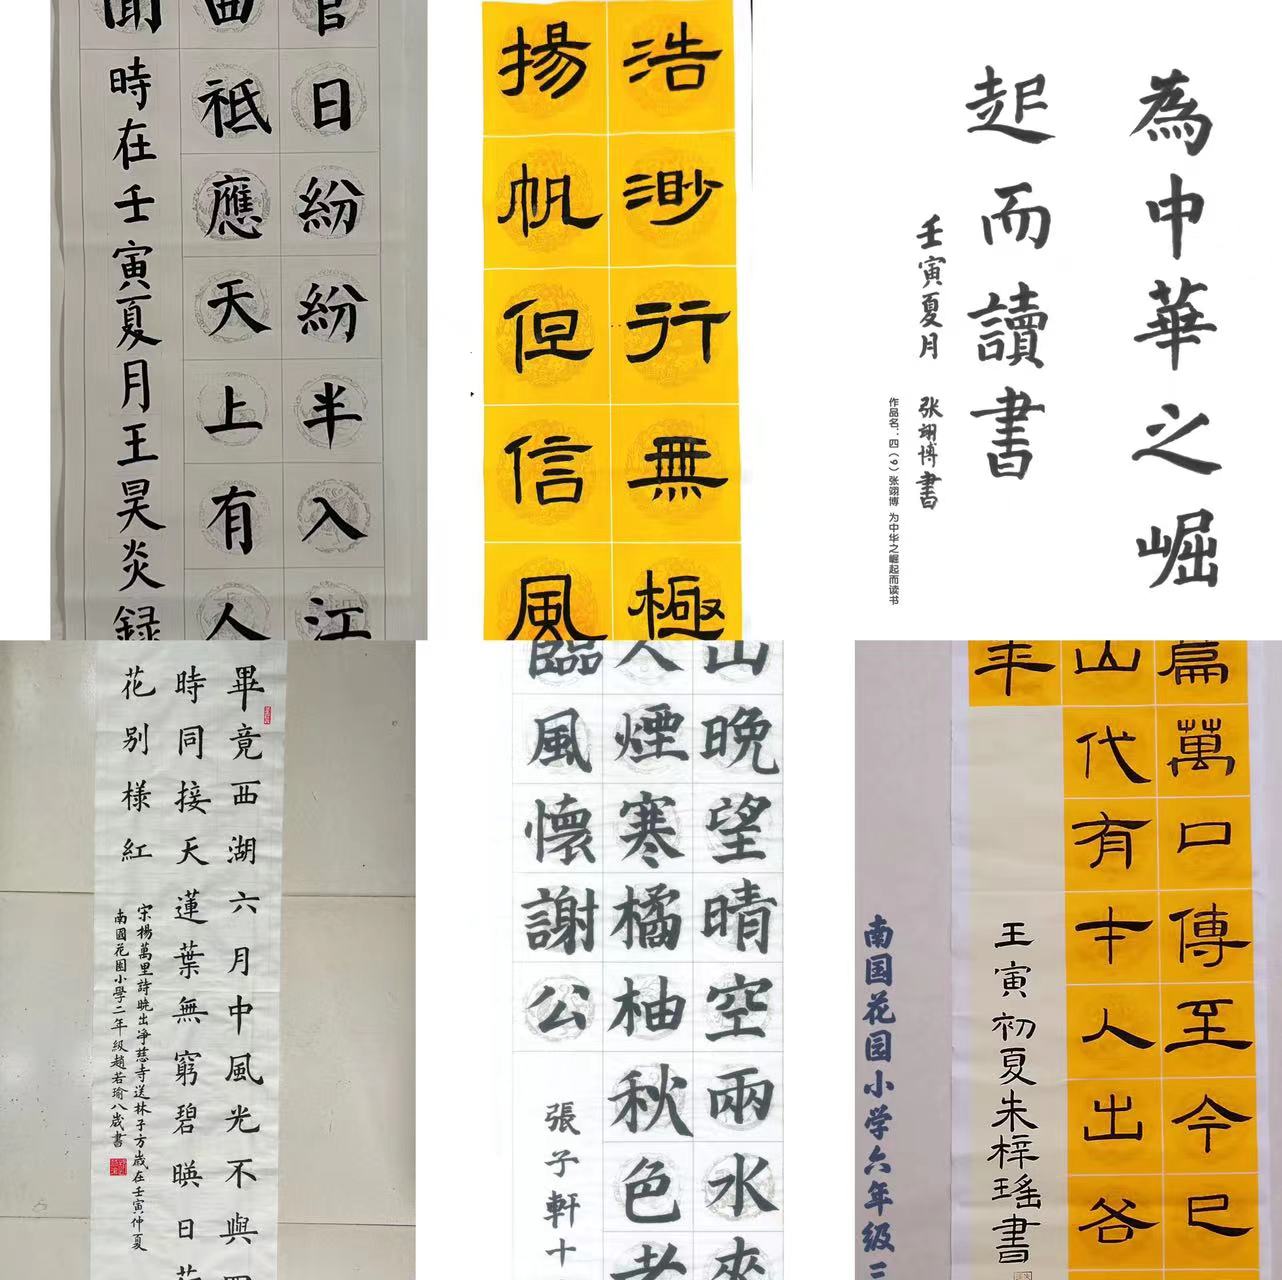 管日紛紛半入江
曲祗應天上有人
聞
時在壬寅夏月王昊炎録
浩渺行無極
揚帆但信風
為中華之崛
起而讀書
壬寅夏月 张翊博書
作品名:四(9)张翊博 为中华之崛起而读书
畢竟西湖六月中風光不與四
時同接天蓮葉無窮碧暎日荷
花别樣紅
宋楊萬里詩曉出净慈寺送林子方歲在壬寅仲夏
南國花園小學二年級趙若瑜八歲書
山晚望晴空兩水夾
人煙寒橘柚秋色老
臨風懷謝公
張子軒十
篇萬口傳至今已
山代有才人出各
年
壬寅初夏朱梓瑤書
南国花园小学六年级三